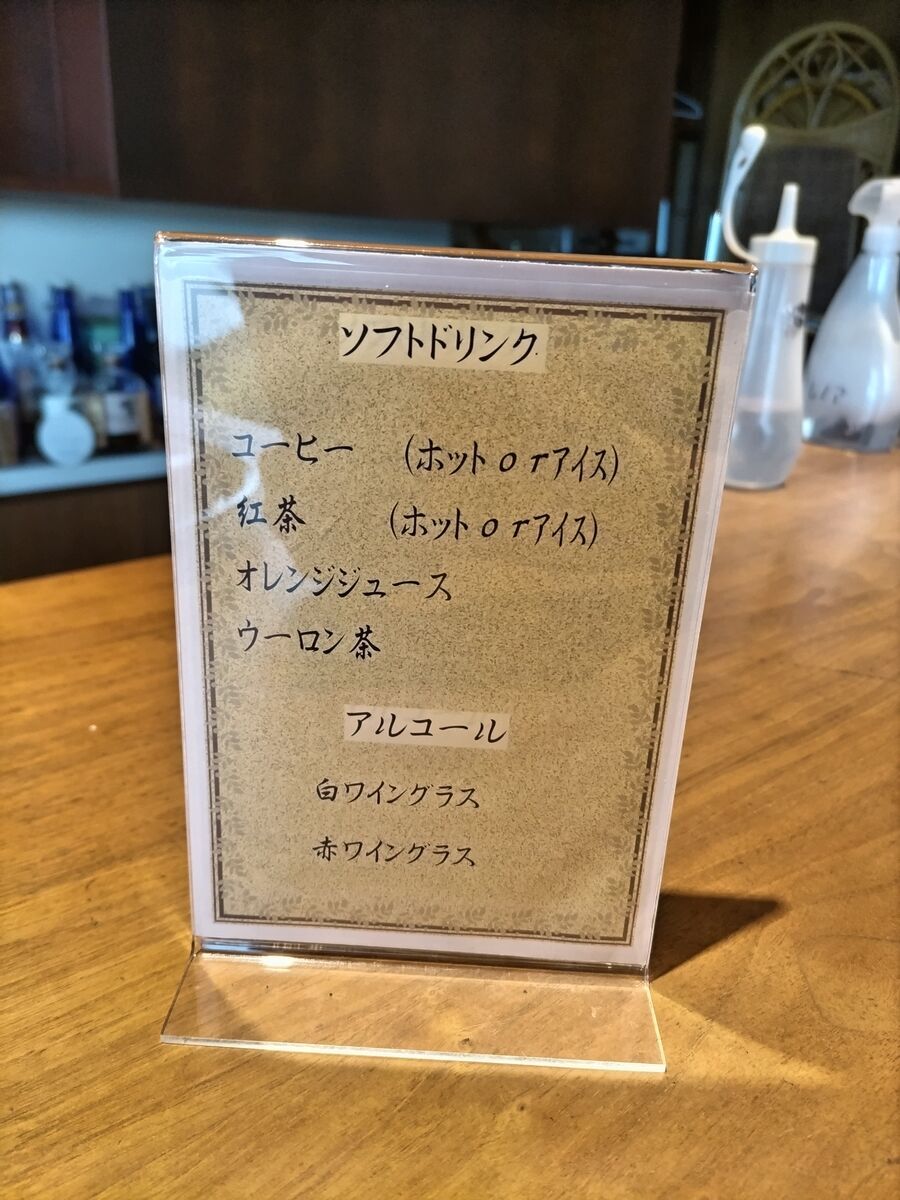 ソフトドリンク
コーヒー (ホットorアイス)
紅茶 (ホットorアイス)
オレンジジュース
ウーロン茶
アルコール
白ワイングラス
赤ワイングラス